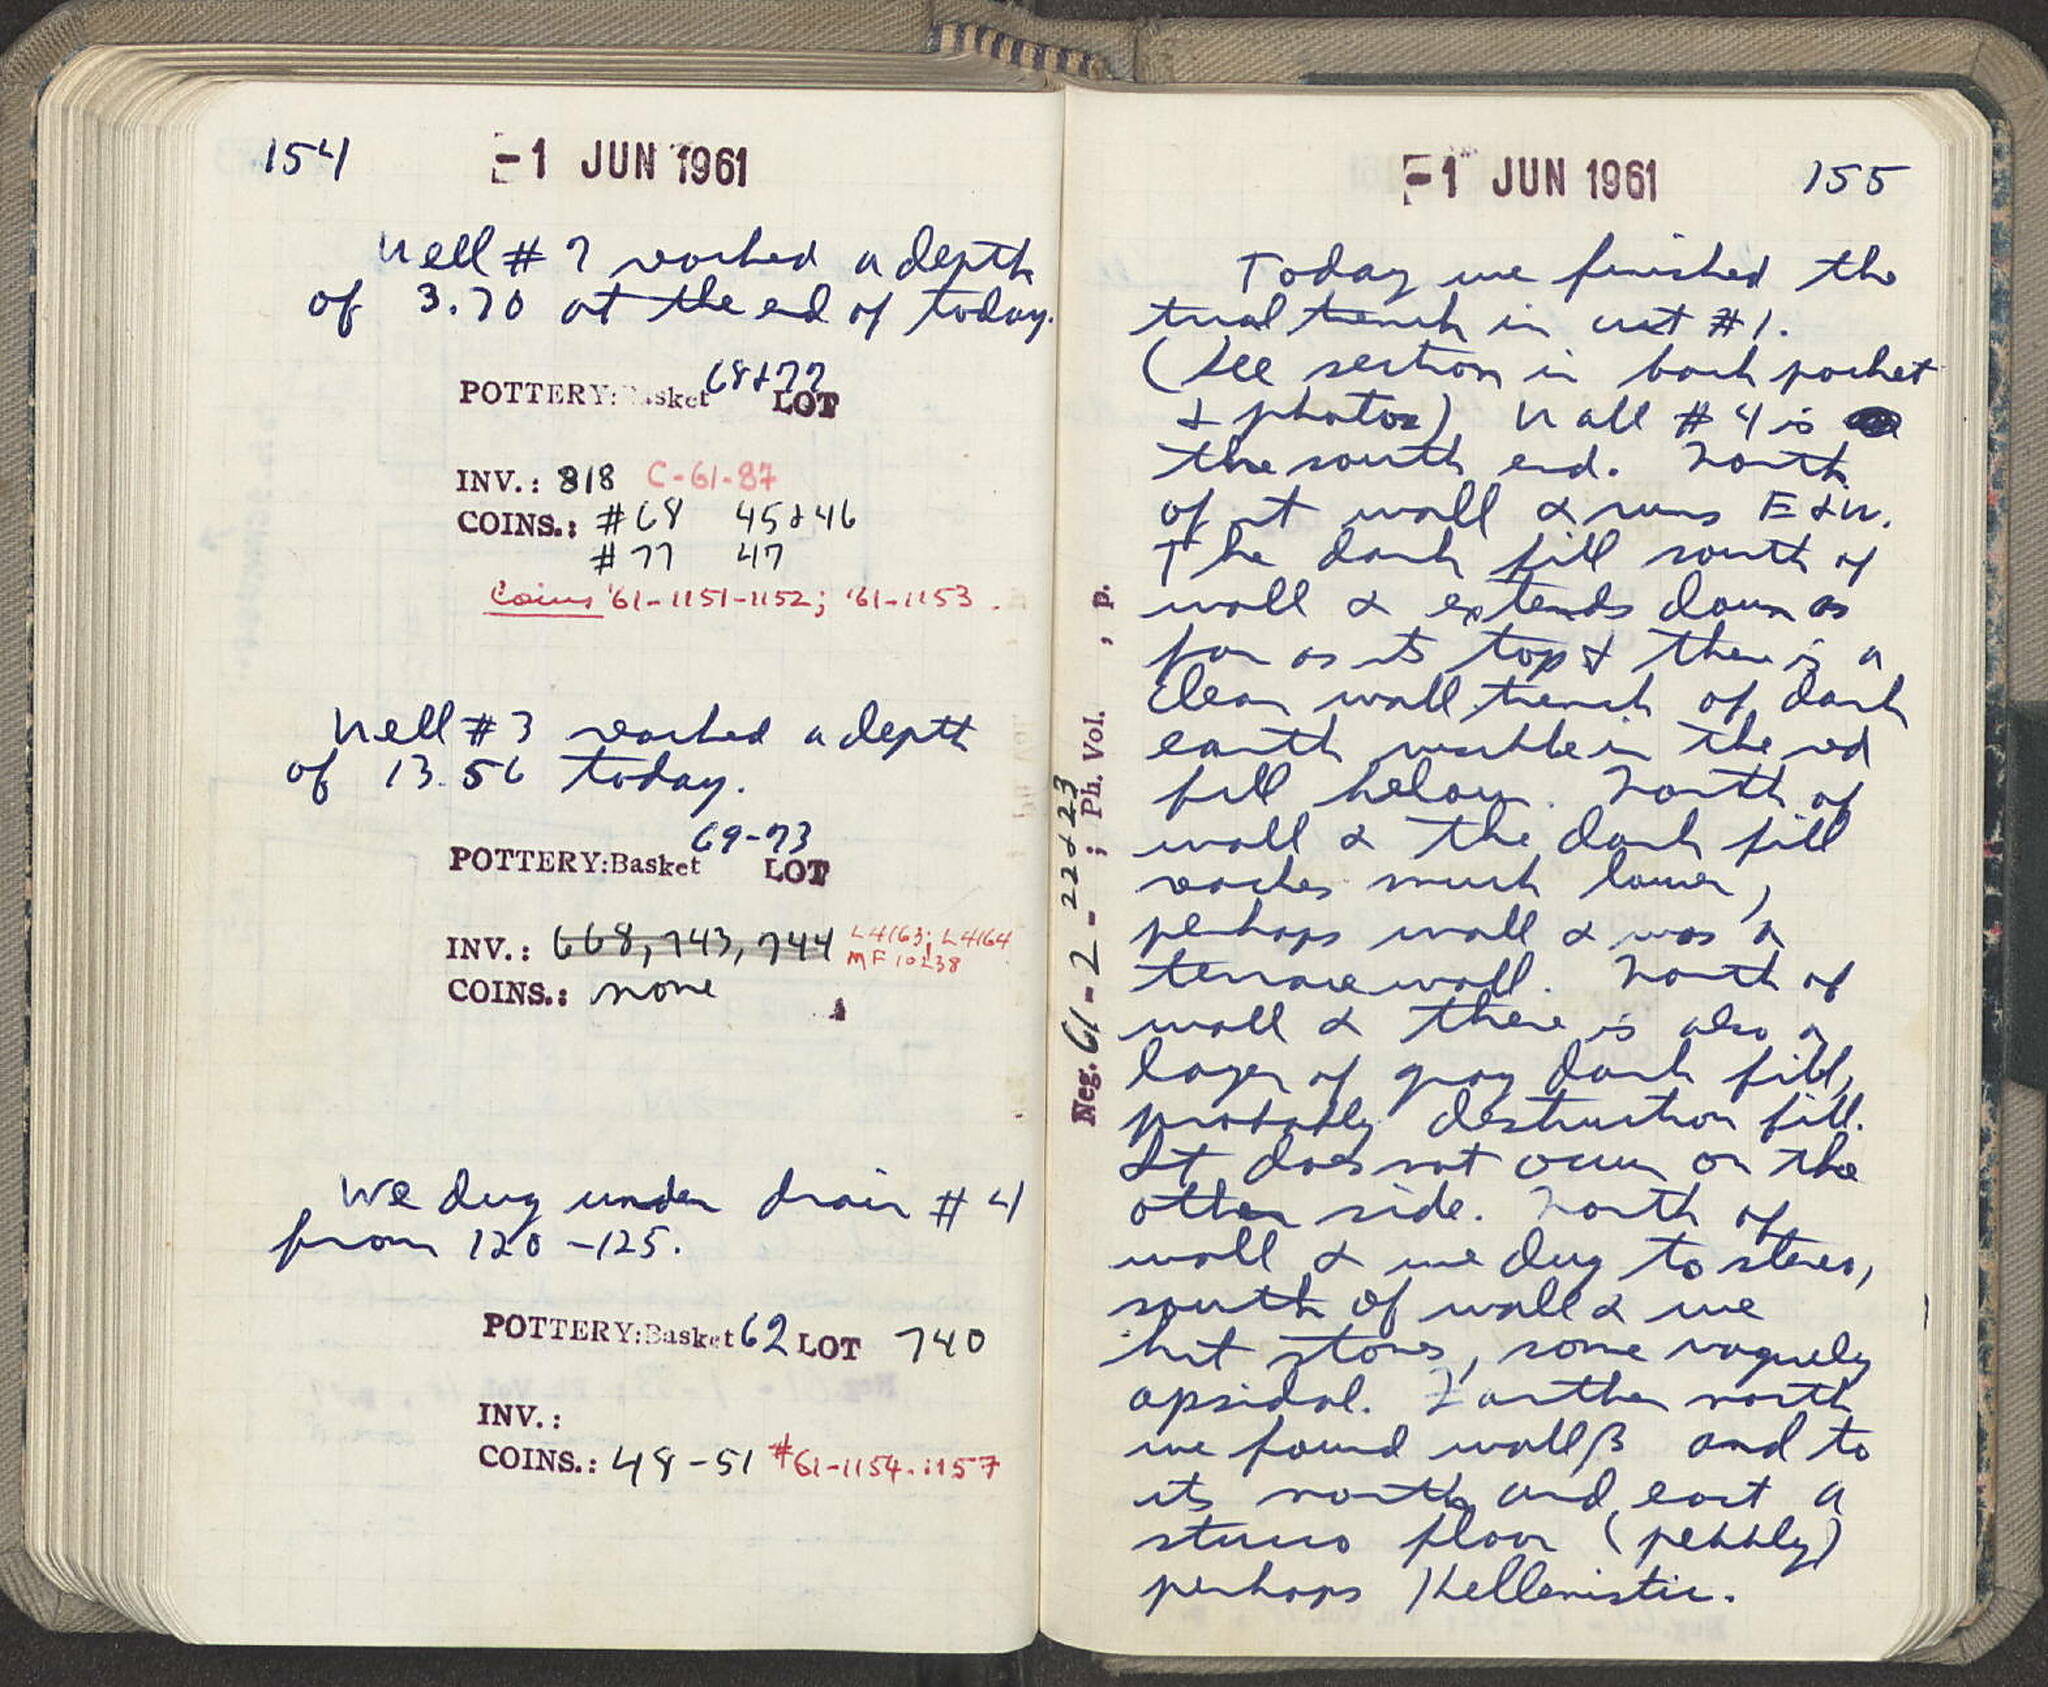 154
-1 JUN 1961
Well # 7 reached a depth
of 3.70 at the end of today.
68+77
POTTERY: Basket LOT
INV.: 818 C-61-87
COINS.: #68 45+46
#77 47
Coins '61-1151-1152; '61-1153.
Well # 3 reached a depth
of 13.56 today.
69-73
POTTERY:Basket LOT
INV.: 668, 743, 744 L4163; L4164
MF 10238
COINS.: none
We dug under drain # 4
from 120-125.
POTTERY:Basket 62 LOT 740
INV.:
COINS.: 48-51 #61-1154-1157
-1 JUN 1961
155
Neg. 61-2-22+23; Ph. Vol. , p.
Today we finished the
trial trench in cut #1.
(See section in back pocket
+ photos) Wall # 4 is
the south end. North
of it wall α runs E+W.
The dark fill south of
wall α extends down as
far as its top + there is a
clear wall trench of dark
earth visible in the red
fill below. North of
wall α the dark fill
reaches much lower,
perhaps wall α was a
terrace wall. North of
wall α there is also a
layer of gray dark fill,
probably destruction fill.
It does not occur on the
other side. North of
wall α we dug to stereo,
south of wall α we
hit stones, some vaguely
apsidal. Farther north
we found wall β and to
its north and east a
stucco floor (pebbly)
perhaps Hellenistic.